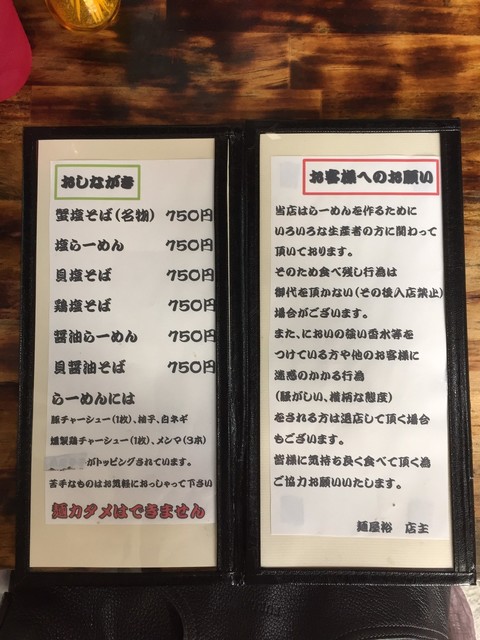 おしながき
蟹塩そば(名物) 750円
塩らーめん 750円
貝塩そば 750円
鶏塩そば 750円
醤油らーめん 750円
貝醤油そば 750円
らーめんには
豚チャーシュー(1枚)、柚子、白ネギ
燻製鶏チャーシュー(1枚)、メンマ(3本)
がトッピングされています。
苦手なものはお気軽におっしゃって下さい
麺カタメはできません
お客様へのお願い
当店はらーめんを作るために
いろいろな生産者の方に関わって
頂いております。
そのため食べ残し行為は
御代を頂かない(その後入店禁止)
場合がございます。
また、においの強い香水等を
つけている方や他のお客様に
迷惑のかかる行為
(騒がしい、横柄な態度)
をされる方は退店して頂く場合
もございます。
皆様に気持ち良く食べて頂く為
ご協力お願いいたします。
麺屋裕 店主